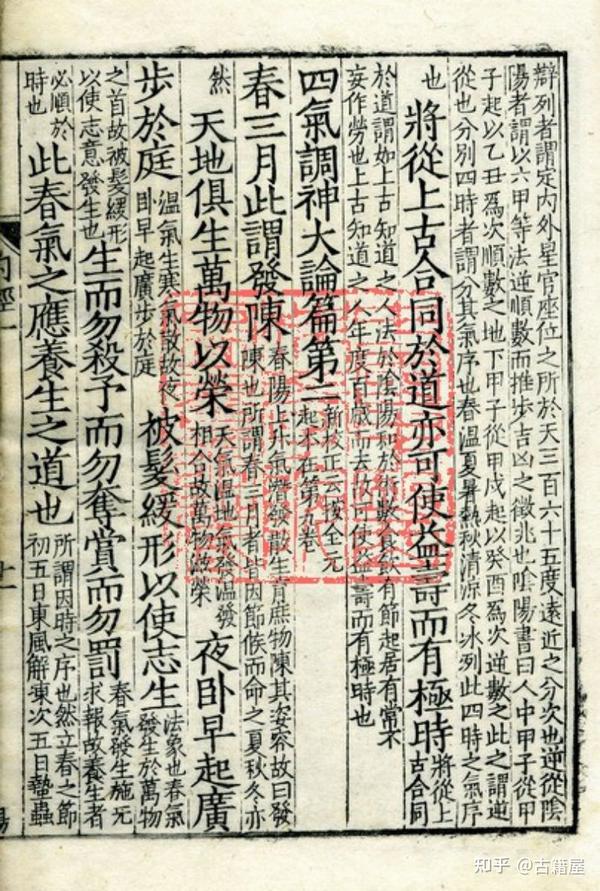 辯列者謂定內外星官座位之所於天三百六十五度遠近之分次也逆從陰
陽者謂以六甲等法逆順數而推步吉凶之徵兆也陰陽書曰人中甲子從甲
子起以乙丑為次順數之地下甲子從甲戌起以癸酉為次逆數之此之謂逆
從也分別四時者謂分其氣序也春溫夏暑熱秋清涼冬冰列此四時之氣序
也將從上古合同於道亦可使益壽而有極時將從上古合同
於道謂如上古知道之人法於陰陽和於術數食飲有節起居有常不
妄作勞也上古知道之人年度百歲而去故可使益壽而有極時也
四氣調神大論篇第二新校正云按全元起本在第九卷
春三月此謂發陳春陽上升氣潛發散生育庶物陳其姿容故曰發陳也所謂春三月者皆因節候而命之夏秋冬亦
然天地俱生萬物以榮天氣溫地氣發溫發相合故萬物滋榮夜卧早起廣
步於庭溫氣生寒氣散故夜卧早起廣步於庭被髮緩形以使志生法象也春氣發生於萬物
之首故被髮緩形以使志意發生也生而勿殺予而勿奪賞而勿罰春氣發生施无求報故養生者
必順於時也此春氣之應養生之道也所謂因時之序也然立春之節初五日東風解凍次五日蟄蟲
知乎 @古籍屋